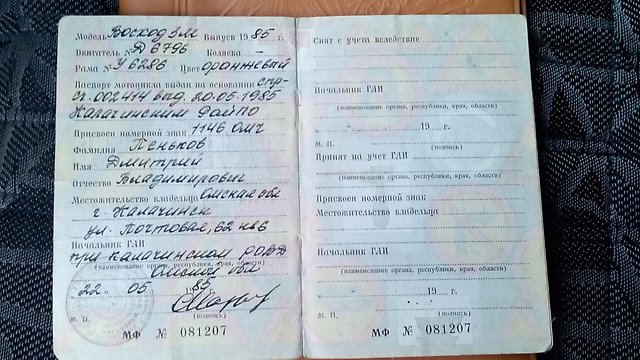 Модель Восход 3М Выпуск 1985 г.
Двигатель № Д 6796 Коляска —
Рама № У 6286 Цвет оранжевый
Паспорт мотоцикла выдан на основании спр-
сг. 002414 выд. 20.05.1985
Калачинским РОЙПО
Присвоен номерной знак 1146 ОМЧ
Фамилия Пеньков
Имя Дмитрий
Отчество Владимирович
Местожительство владельца Омская обл
г. Калачинск
ул. Почтовая, 62 кв 6
Начальник ГАИ
при калачинском РОВД
(наименование органа, республики, края, области)
Омской обл
22 05 85
М. П. (подпись)
МФ № 081207
Снят с учета вследствие
Начальник ГАИ
(наименование органа, республики, края, области)
„ “ 19 г.
М. П. (подпись)
Принят на учет ГАИ
(наименование органа, республики, края, области)
Присвоен номерной знак
Местожительство владельца
Начальник ГАИ
(наименование органа, республики, края, области)
„ “ 19 г.
М. П. (подпись)
МФ № 081207